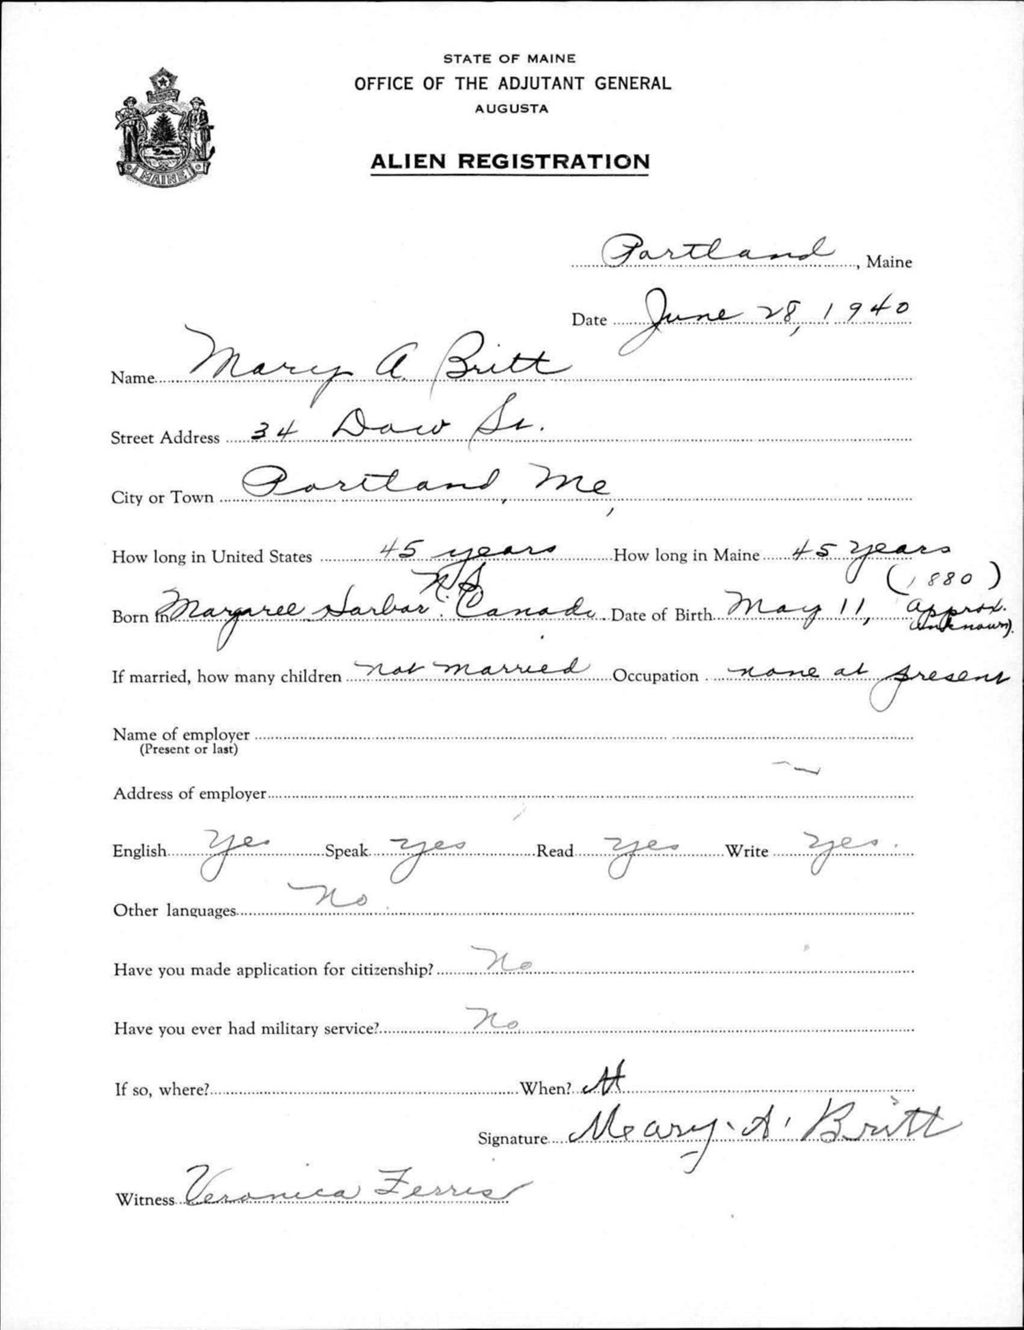 STATE OF MAINE
OFFICE OF THE ADJUTANT GENERAL
AUGUSTA
ALIEN REGISTRATION
MAINE
Portland, Maine
Date June 28, 1940
Name Mary A. Britt
Street Address 34 Dow St.
City or Town Portland, Me,
How long in United States 45 years How long in Maine 45 years
Born in Margaree Harbor N.S. Canada. Date of Birth May 11, (1880) Approx. unknown).
If married, how many children not married Occupation none at present
Name of employer
(Present or last)
Address of employer
English yes Speak yes Read yes Write yes.
Other languages No
Have you made application for citizenship? No
Have you ever had military service? No
If so, where? When?
Signature Mary. A. Britt
Witness Veronica Ferris